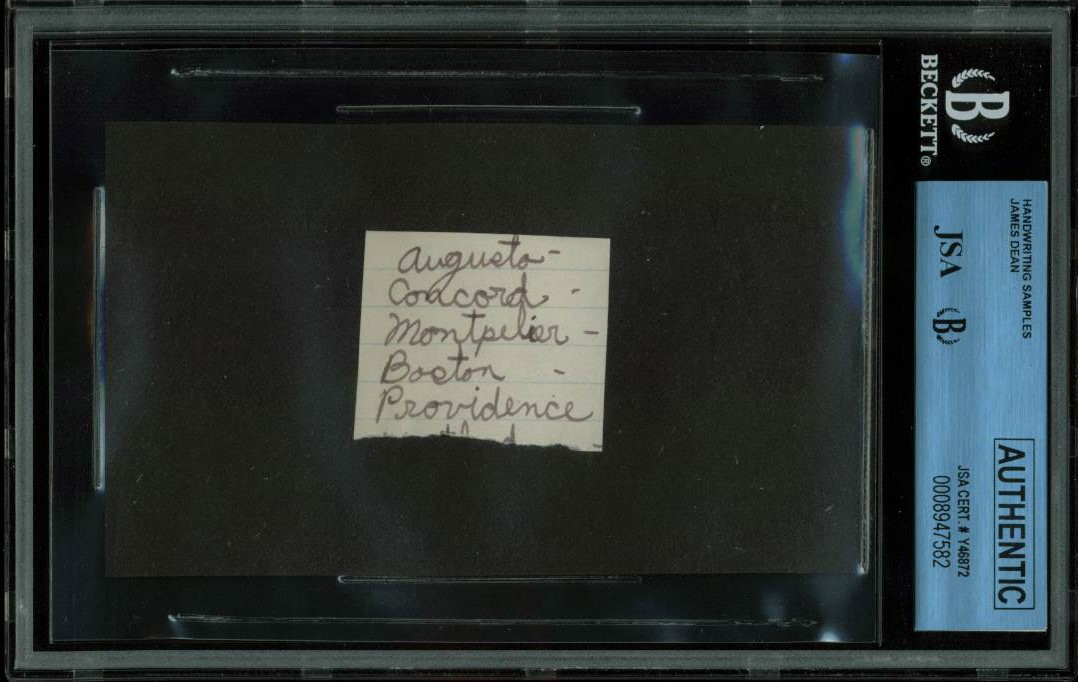 Augusta -
Concord -
Montpelier -
Boston -
Providence
BECKETT®
B
HANDWRITING SAMPLES
JAMES DEAN
JSA B
AUTHENTIC
JSA CERT. # Y46872
0008947582